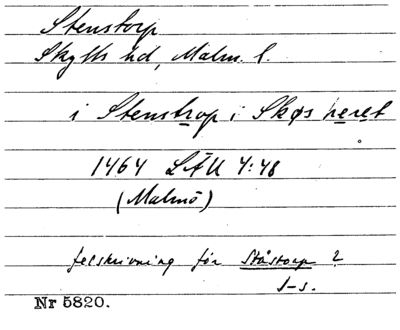 Stenstorp
Skytts hd, Malm. l.
i Stenstrop i Skøs heret
1464 LÄU 4:48
(Malmö)
felskrivning för Ståstorp?
J-s.
Nr 5820.